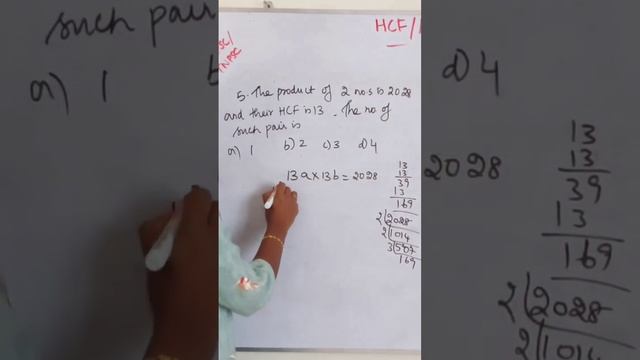 such pair
a) 1
HCF/
SC/
NPSC
5. The product of 2 no.s is 2028
and their HCF is 13. The no. of
such pair is
a) 1 b) 2 c) 3 d) 4
13a × 13b = 2028
13
13
39
13
169
2 2028
2 1014
3 507
169
d) 4
2028
13
13
39
13
169
2 2028
2 1014